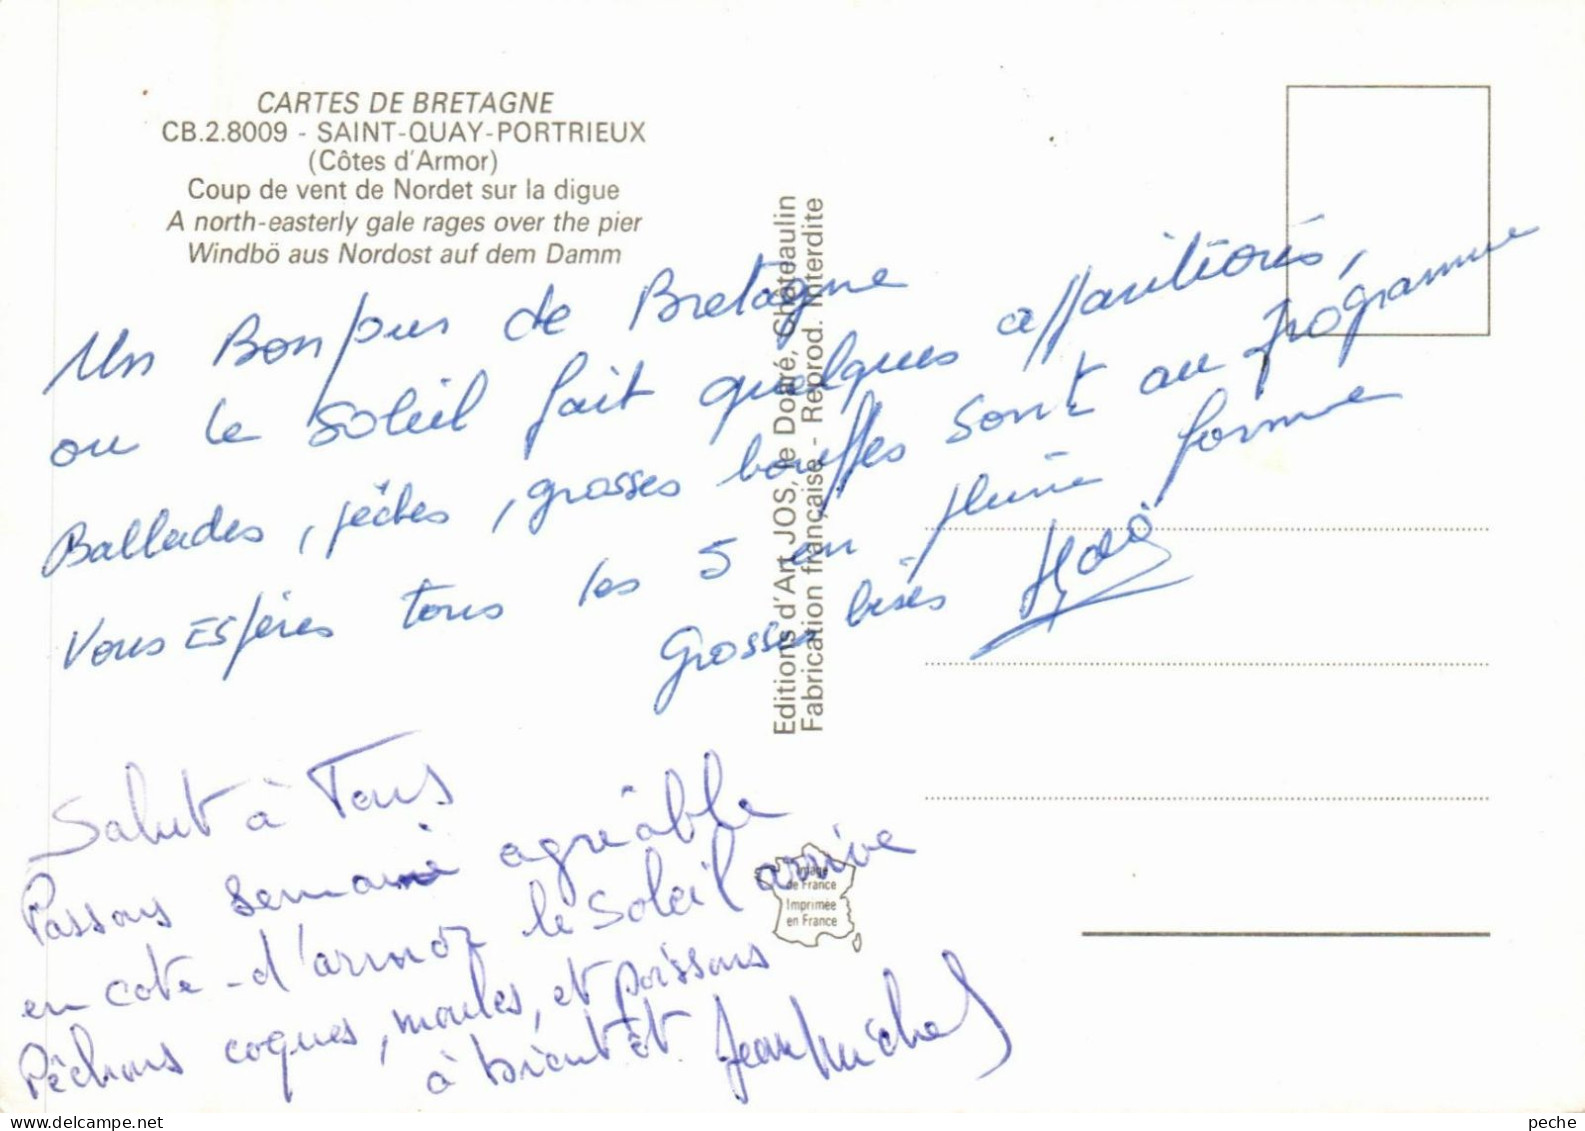 CARTES DE BRETAGNE
CB.2.8009 - SAINT-QUAY-PORTRIEUX
(Côtes d'Armor)
Coup de vent de Nordet sur la digue
A north-easterly gale rages over the pier
Windbö aus Nordost auf dem Damm
Un Bonjour de Bretagne
ou le soleil fait quelques apparitions,
Ballades, pêches, grosses bouffes sont au programme
Vous Espères tous les 5 en pleine forme
Grosses bises
Salut à Tous
Passons semaine agréable
en cote-d'armor le soleil arrive
Pêchons coques, moules, et poissons
à bientôt. Jean Michel
Editions d'Art JOS, le Doaré, Châteaulin
Fabrication française - Reprod. Interdite
Image
de France
Imprimée
en France
peche